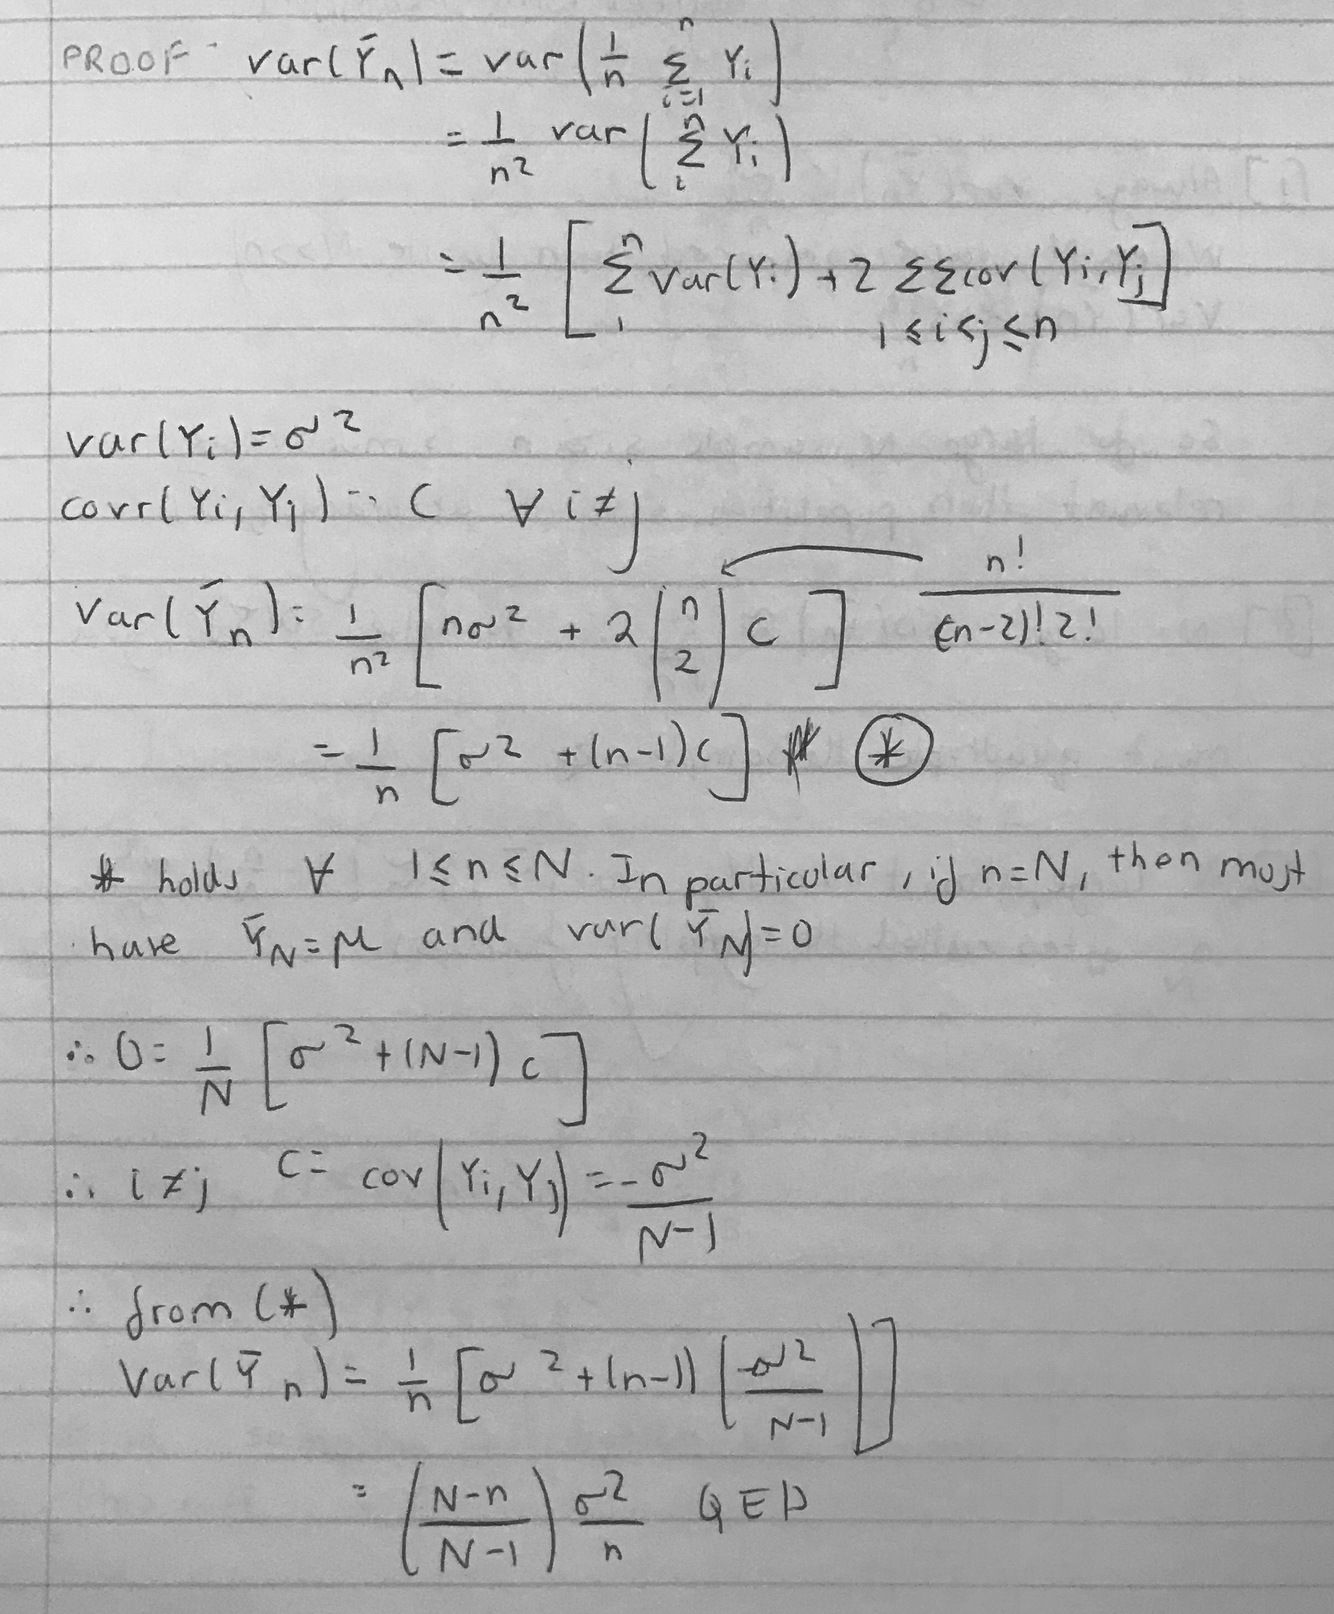 PROOF var(Ȳn) = var(1/n Σ_{i=1}^{n} Yi)
= 1/n² var(Σ_{i}^{n} Yi)
= 1/n² [Σ_{1}^{n} var(Yi) + 2 ΣΣ cov(Yi, Yj)]
1 ≤ i < j ≤ n
var(Yi) = σ²
corr(Yi, Yj) = C ∀ i ≠ j
Var(Ȳn) = 1/n² [nσ² + 2 (n 2) C] n!/((n-2)! 2!)
= 1/n [σ² + (n-1)C] *
* holds ∀ 1 ≤ n ≤ N. In particular, if n = N, then must
have ȲN = μ and var(ȲN) = 0
∴ 0 = 1/N [σ² + (N-1) C]
∴ i ≠ j C = cov(Yi, Yj) = -σ²/(N-1)
∴ from (*)
Var(Ȳn) = 1/n [σ² + (n-1)(-σ²/(N-1))]
= ((N-n)/(N-1)) σ²/n QED